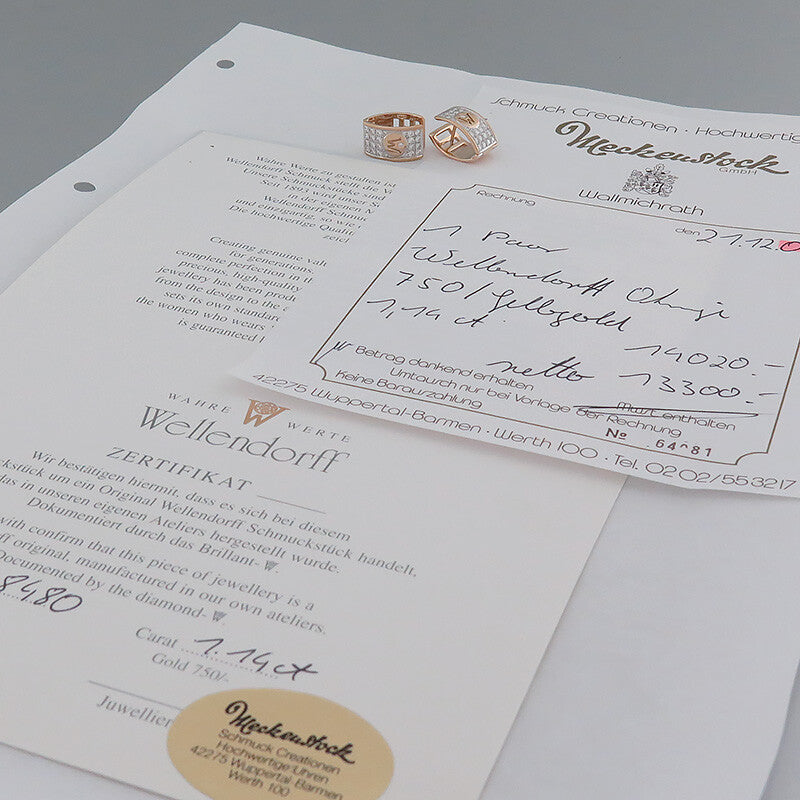 Schmuck Creationen · Hochwertige
Meckenstock
GmbH
Wallmichrath
Rechnung
den 21.12.0
1 Paar
Wellendorff Ohrringe
750/ Gelbgold
1,14 ct.
14020.-
netto 13300.-
Betrag dankend erhalten
Umtausch nur bei Vorlage der Rechnung
Keine Barauszahlung
MwSt enthalten
№ 64^81
42275 Wuppertal-Barmen · Werth 100 · Tel. 02 02/55 3217
Wahre Werte zu gestalten ist
Wellendorff Schmuck stellt die Vi
Unsere Schmuckstücke sind
Seit 1893 wird unser
in der eigenen M
Wellendorff Schmuc
und einzigartig, so wie
Die hochwertige Qualit
zeich
Creating genuine valu
for generations.
complete perfection in th
precious, high-quality
jewellery has been produ
from the design to the
sets its own standard
the women who wears
is guaranteed
WAHRE W WERTE
Wellendorff
ZERTIFIKAT
Wir bestätigen hiermit, dass es sich bei diesem
ckstück um ein Original Wellendorff Schmuckstück handelt,
das in unseren eigenen Ateliers hergestellt wurde.
Dokumentiert durch das Brillant-W.
with confirm that this piece of jewellery is a
ff original, manufactured in our own ateliers.
Documented by the diamond-W.
8480
Carat 1.14 ct
Gold 750/-
Juwelier
Meckenstock
Schmuck Creationen
Hochwertige Uhren
42275 Wuppertal-Barmen
Werth 100